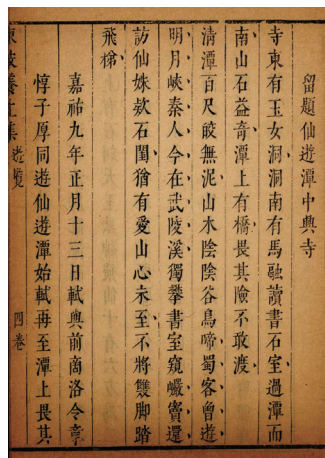 留題仙遊潭中興寺
寺東有玉女洞洞南有馬融讀書石室過潭而
南山石益奇潭上有橋畏其險不敢渡
清潭百尺皎無泥山木陰陰谷鳥啼蜀客曾遊
明月峽秦人今在武陵溪獨攀書室窺巖竇還
訪仙姝欵石閨猶有愛山心未至不將雙脚踏
飛梯
嘉祐九年正月十三日軾與前商洛令章
惇子厚同遊仙遊潭始軾再至潭上畏其
東坡養生集 遊覽 四卷